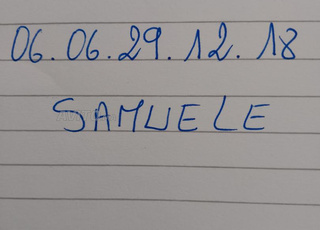 06.06.29.12.18
SAMUELE